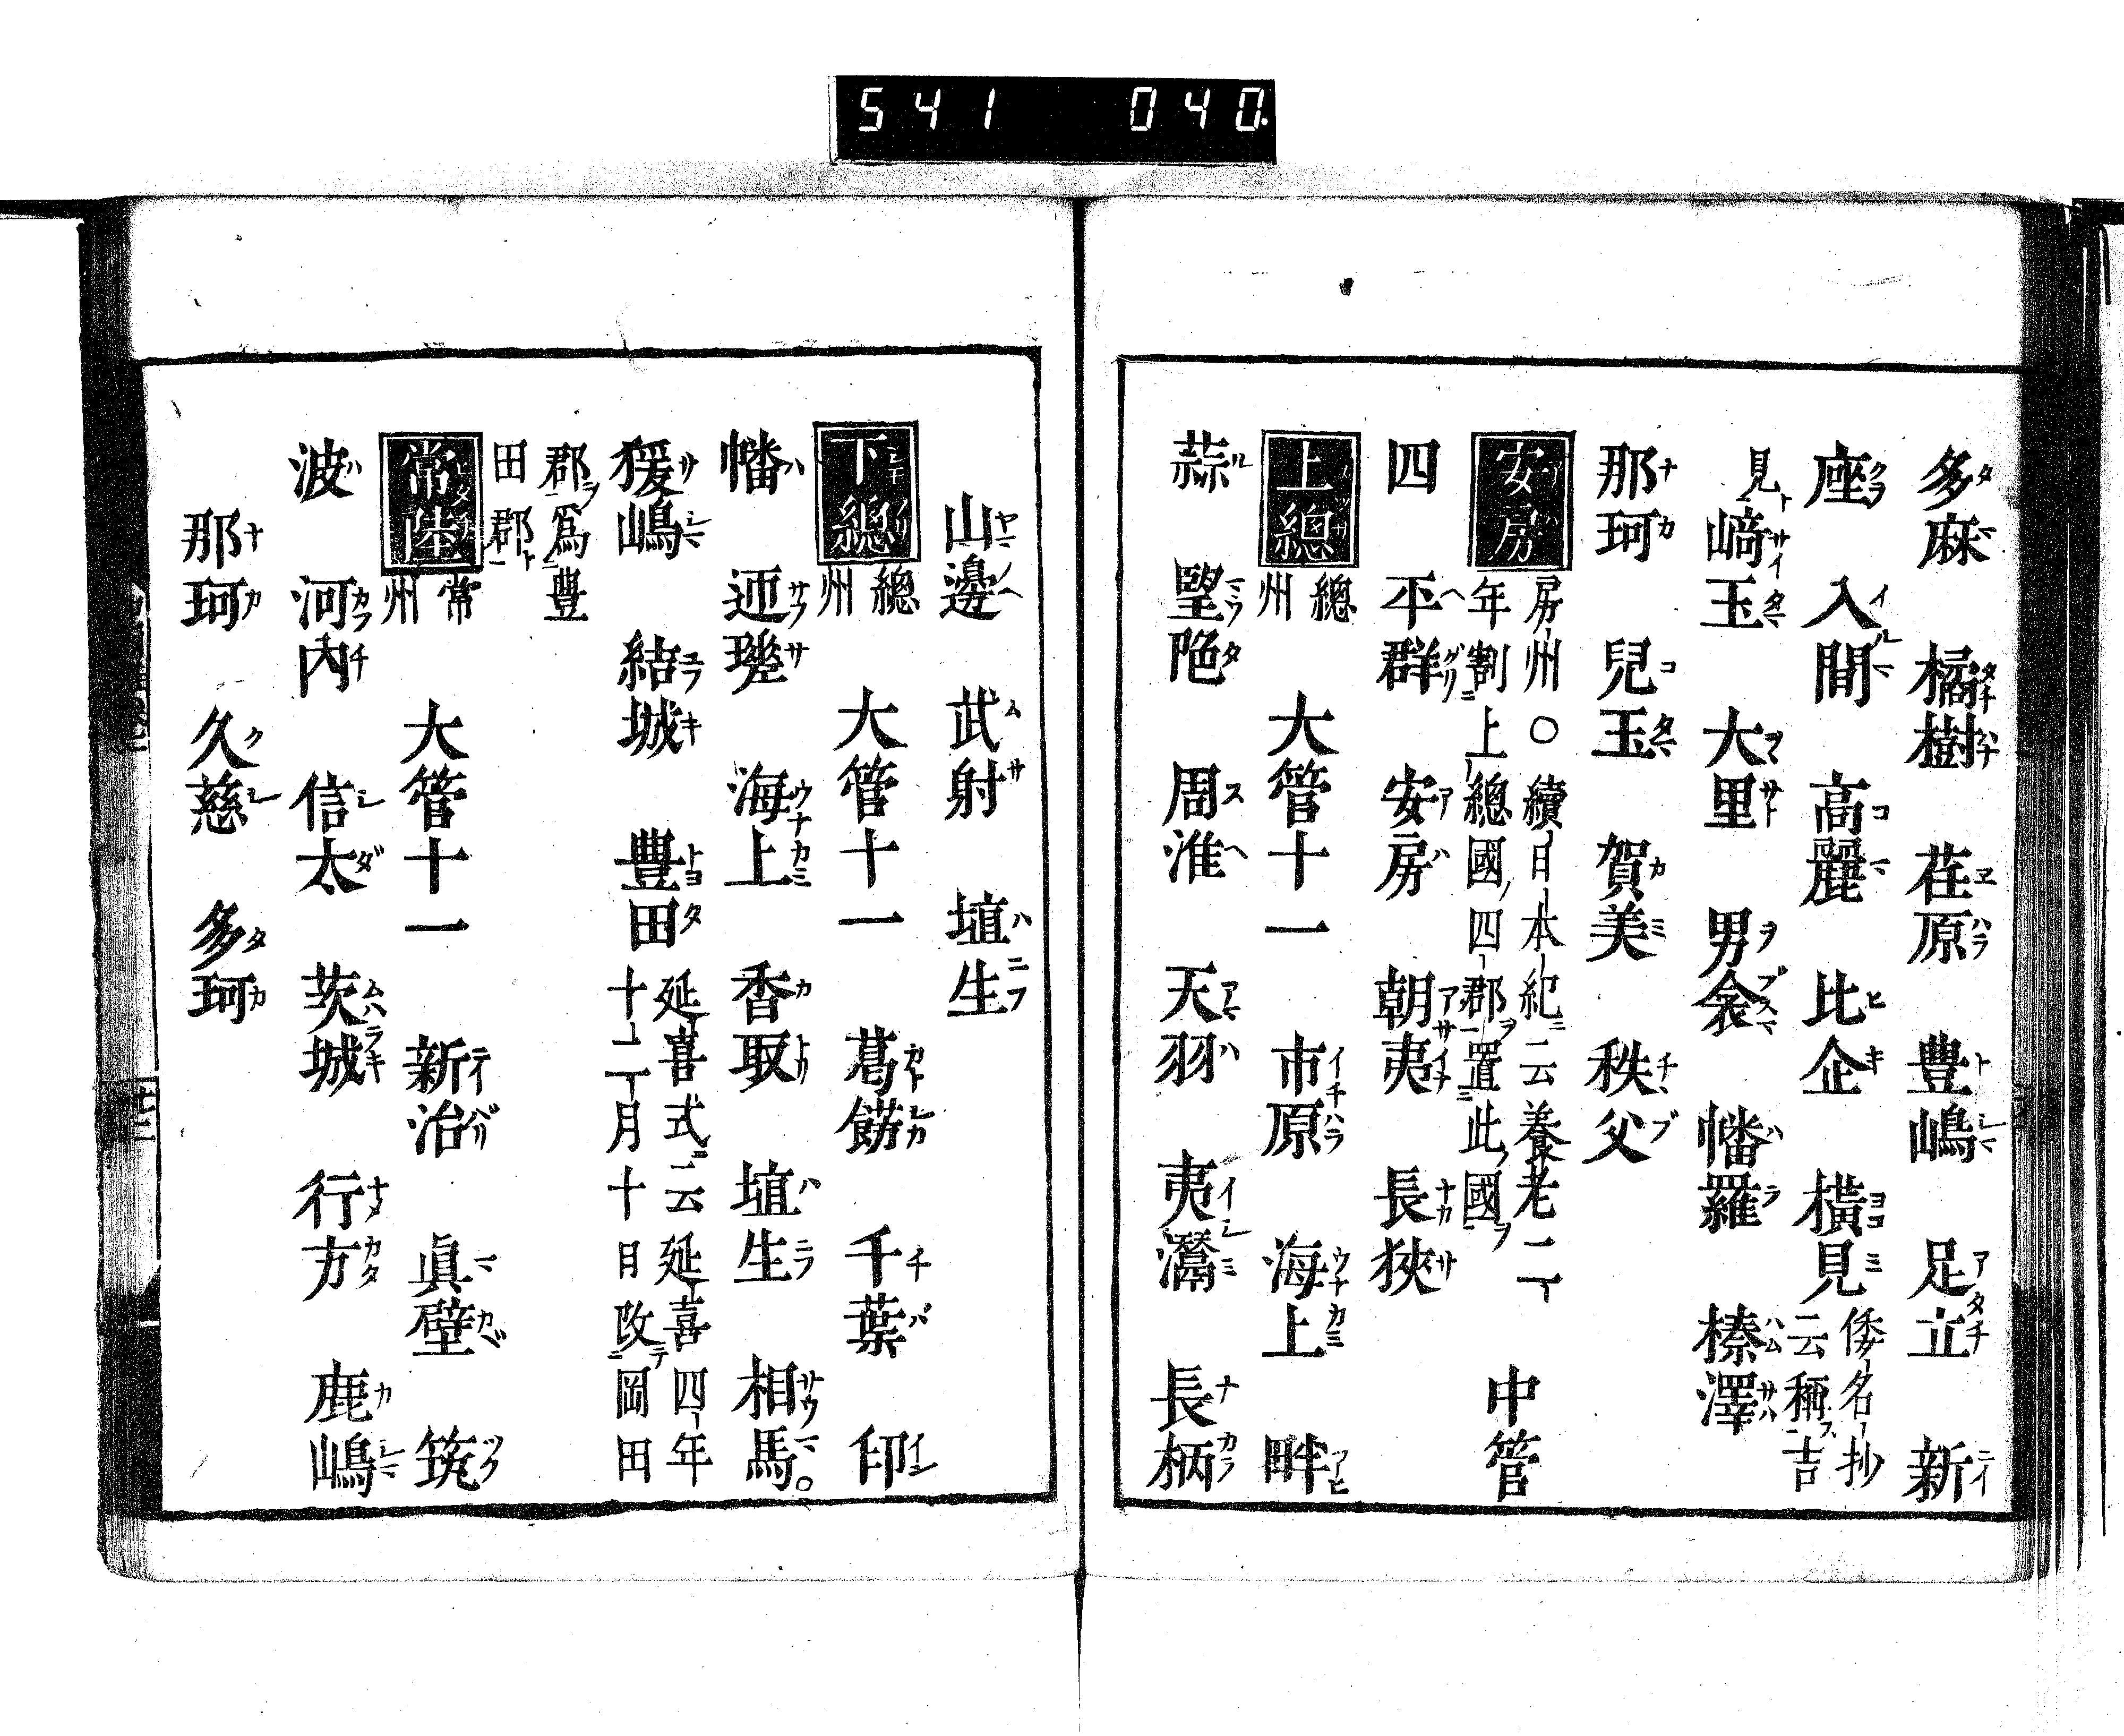 541 040
多麻 橘樹 荏原 豊嶋 足立 新
座 入間 高麗 比企 橫見 倭名抄
云稱吉
見 﨑玉 大里 男衾 幡羅 榛澤
那珂 兒玉 賀美 秩父
安房 房州○續日本紀云養老二
年割上總國四郡置此國 中管
四 平群 安房 朝夷 長狹
上總 總州 大管十一 市原 海上 畔
蒜 望陁 周淮 天羽 夷灊 長柄
山邊 武射 埴生
下總 總州 大管十一 葛餝 千葉 印
幡 迊瑳 海上 香取 埴生 相馬
猨嶋 結城 豊田 延喜式云延喜四年
十二月十日改岡田
郡爲豊
田郡
常陸 常州 大管十一 新治 眞壁 筑
波 河內 信太 茨城 行方 鹿嶋
那珂 久慈 多珂